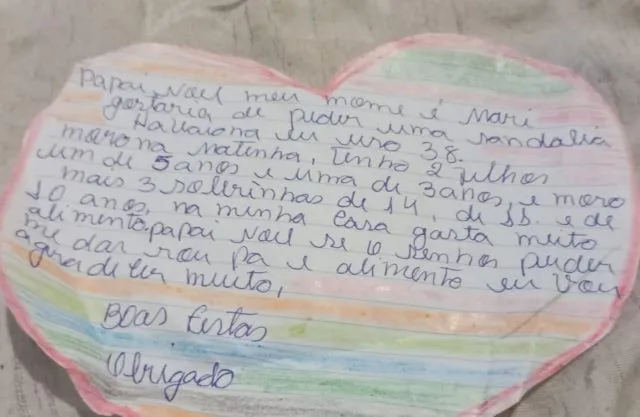 Papai Noel meu nome é Mari
gostaria de pidir uma sandalia
Havaiana eu uso 38.
moro na matinha, tenho 2 filhos
um de 5 anos e uma de 3 anos, e moro
mais 3 sobrinhas de 14, de 11. e de
10 anos, na minha casa gasta muito
alimento. papai Noel se o senhor puder
me dar rou pa e alimento eu vou
agradecer muito,
Boas festas
Obrigado